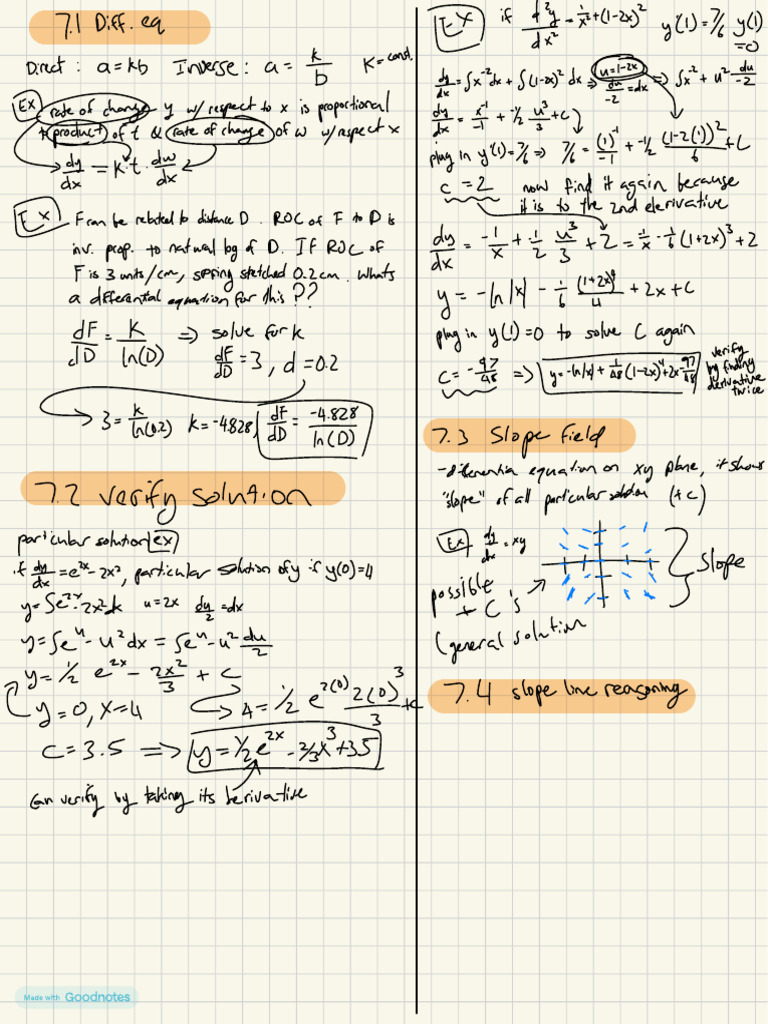 7.1 Diff. eq
Direct: a = kb Inverse: a = k/b K = const.
Ex rate of change y w/ respect to x is proportional
to product of t & rate of change of w w/ respect x
dy/dx = k · t · dw/dx
Ex F can be related to distance D. ROC of F to D is
inv. prop. to natural log of D. If ROC of
F is 3 units/cm, spring stretched 0.2cm. Whats
a differential equation for this??
dF/dD = K/ln(D) ⇒ solve for k
dF/dD = 3, d = 0.2
3 = k/ln(0.2) k = -4.828, dF/dD = -4.828/ln(D)
7.2 verify solution
particular solution ex
if dy/dx = e^2x - 2x², particular solution of y if y(0)=4
u = 2x du/2 = dx
y = ∫e^u - u² dx = ∫e^u - u² du/2
y = 1/2 e^2x - 2x²/3 + c
y = 0, x = 4 4 = 1/2 e^2(0) 2(0)³/3 + c
c = 3.5 ⇒ y = 1/2 e^2x - 2/3 x³ + 3.5
can verify by taking its derivative
Ex if d²y/dx² = 1/x² + (1-2x)² y'(1) = 7/6 y(1) = 0
dy/dx = ∫x^-2 dx + ∫(1-2x)² dx ⇒ u = 1-2x du/-2 = dx ⇒ ∫x^-2 + u² du/-2
dy/dx = x^-1/-1 + -1/2 u³/3 + c
plug in y'(1) = 7/6 ⇒ 7/6 = (1)^-1/-1 + -1/2 (1-2(1))²/6 + c
c = 2 now find it again because
it is to the 2nd derivative
dy/dx = -1/x + 1/2 u³/3 + 2 = 1/x - 1/6 (1+2x)³ + 2
y = -ln|x| - 1/6 (1+2x)⁴/4 + 2x + c
plug in y(1) = 0 to solve C again
c = -97/48 ⇒ y = -ln|x| + 1/48 (1-2x)⁴ + 2x - 97/48 verify by finding derivative twice
7.3 Slope field
- differential equation on xy plane, it shows
"slope" of all particular solution (+c)
Ex dy/dx = xy
slope
possible
+ C's
(general solution
7.4 slope line reasoning
Made with Goodnotes